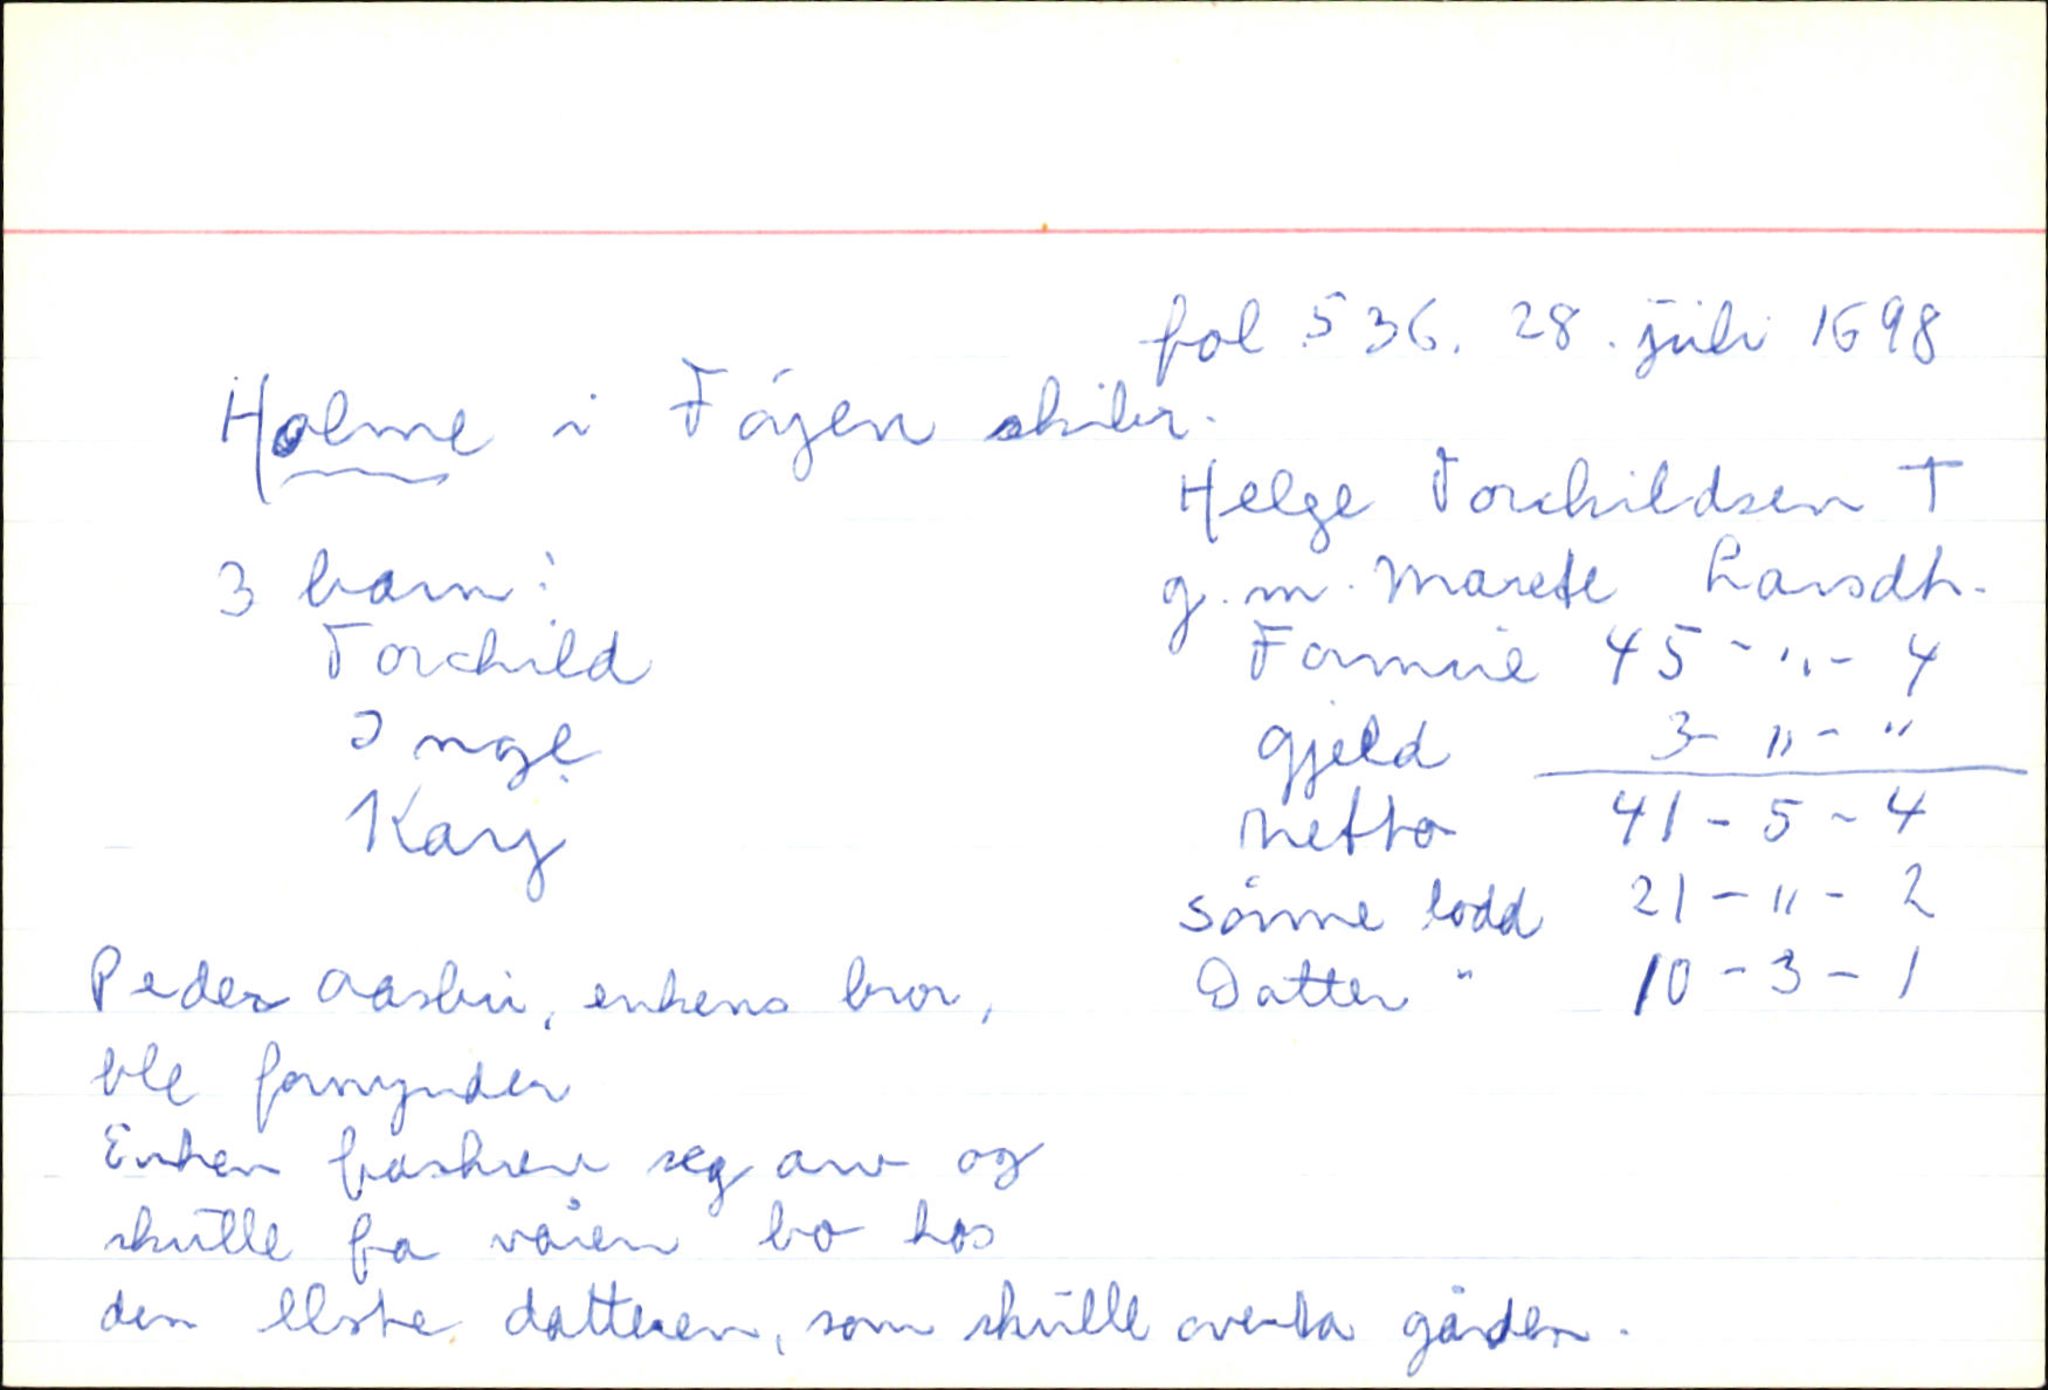 fol 536. 28. juli 1698
Holme i Föyen skibr.
Helge Torchildsen †
g.m. Marete Larsdtr.
3 barn:
Torchild
Inge
Kary
Formue 45 - " - 4
gjeld 3 - " - "
netto 41 - 5 - 4
sönne lodd 21 - " - 2
Datter " 10 - 3 - 1
Peder Aasbu, enkens bror,
ble formynder
Enken fraskrev seg arv og
skulle fra våren bo hos
den elste datteren, som skulle overta gården.